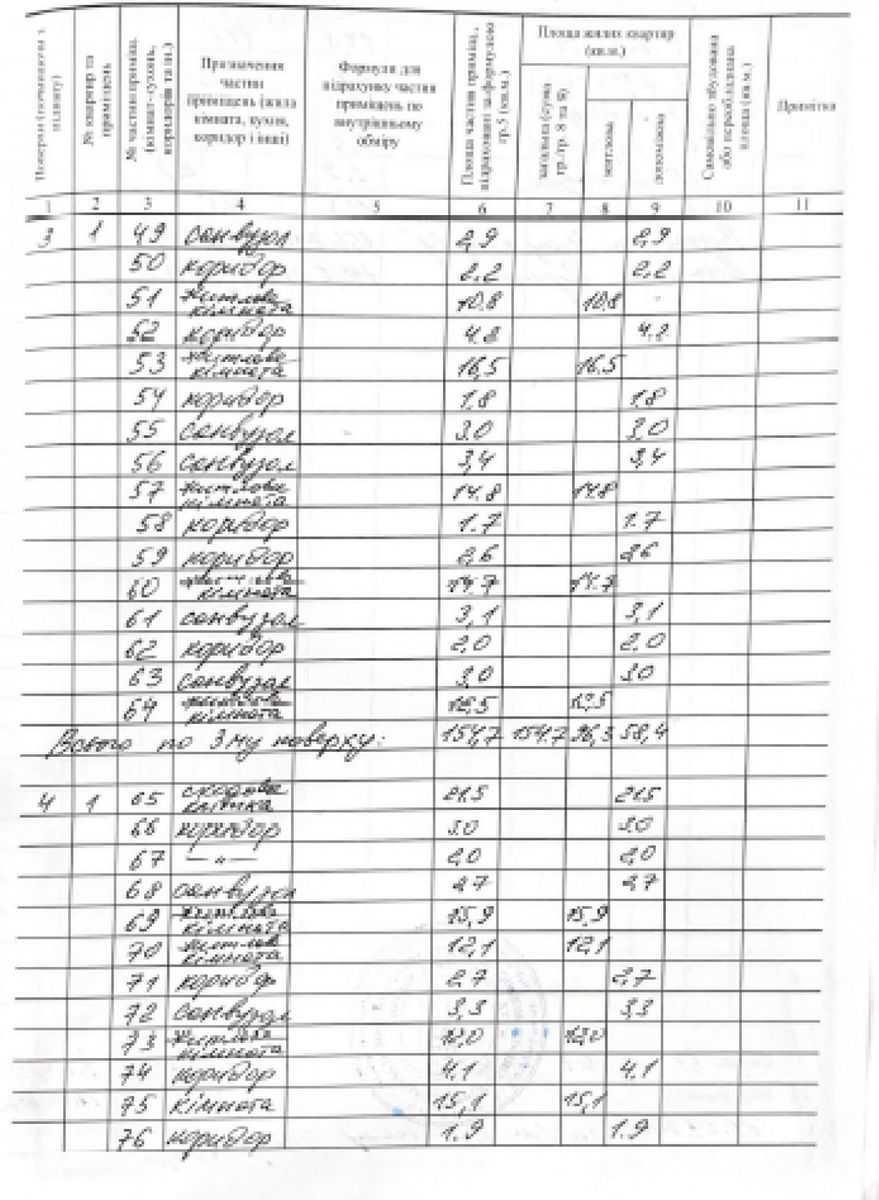 Поверхи (починаючи з підвалу) | № квартир та приміщень | № частин приміщ. (кімнат-кухонь, коридорів та ін.) | Призначення частин приміщень (жила кімната, кухня, коридор і інші) | Формули для підрахунку частин приміщень по внутрішньому обміру | Площа частин приміщ. підрахованої за формулою гр.5 (кв.м.) | Площа жилих квартир (кв.м.) | загальна (сума гр./гр. 8 та 9) | житлова | допоміжна | Самовільно збудована або переобладнана площа (кв.м.) | Примітка
1 2 3 4 5 6 7 8 9 10 11
3 1 49 санвузол 2,9 2,9
50 коридор 2.2 2,2
51 житлова кімната 10.8 10.8
52 коридор 4.8 4.8
53 житлова кімната 16,5 16.5
54 коридор 1.8 1.8
55 санвузол 3.0 3,0
56 санвузол 3,4 3,4
57 житлова кімната 14.8 14.8
58 коридор 1.7 1.7
59 коридор 2,6 2,6
60 житлова кімната 14.7 14.7
61 санвузол 3,1 3,1
62 коридор 2,0 2,0
63 санвузол 3,0 3.0
64 житлова кімната
Всього по 3му поверху: 154,7 154.7 96,3 58,4
4 1 65 сходова клітка 21.5 21.5
66 коридор 3.0 3.0
67 —"— 2,0 2,0
68 санвузол 2.7 2,7
69 житлова кімната 15,9 15,9
70 житлова кімната 12,1 12,1
71 коридор 2,7 2,7
72 санвузол 3,3 3.3
73 житлова кімната
74 коридор 4.1 4.1
75 кімната 15,1 15,1
76 коридор 1.9 1.9